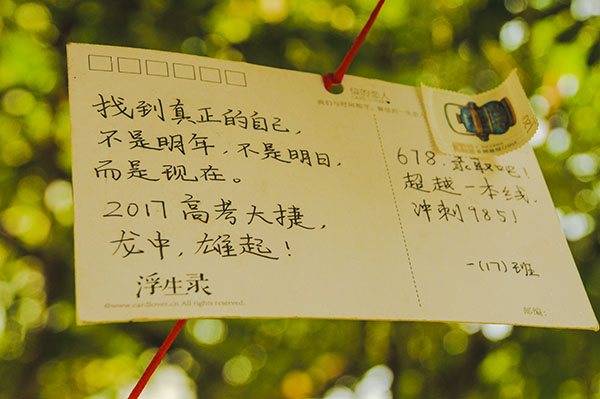 找到真正的自己，
不是明年，不是明日，
而是现在。
2017高考大捷，
龙中，雄起！
浮生录
©www.cardlover.cn All rights reserved.
678，录取吧！
超越一本线，
冲刺985！
-(17)班
邮编：